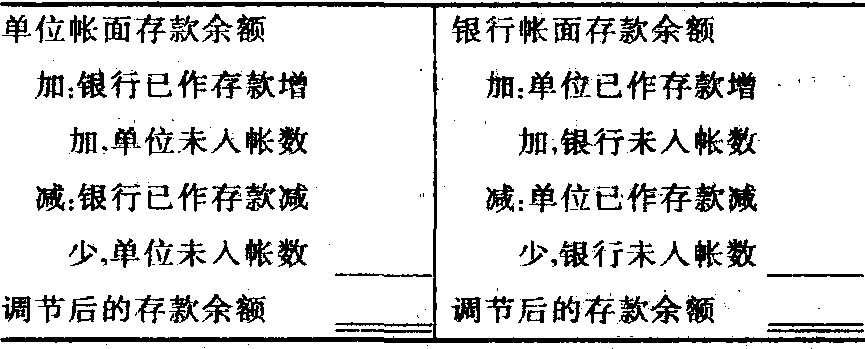 单位帐面存款余额
加:银行已作存款增
加,单位未入帐数
减:银行已作存款减
少,单位未入帐数
调节后的存款余额
银行帐面存款余额
加:单位已作存款增
加,银行未入帐数
减:单位已作存款减
少,银行未入帐数
调节后的存款余额